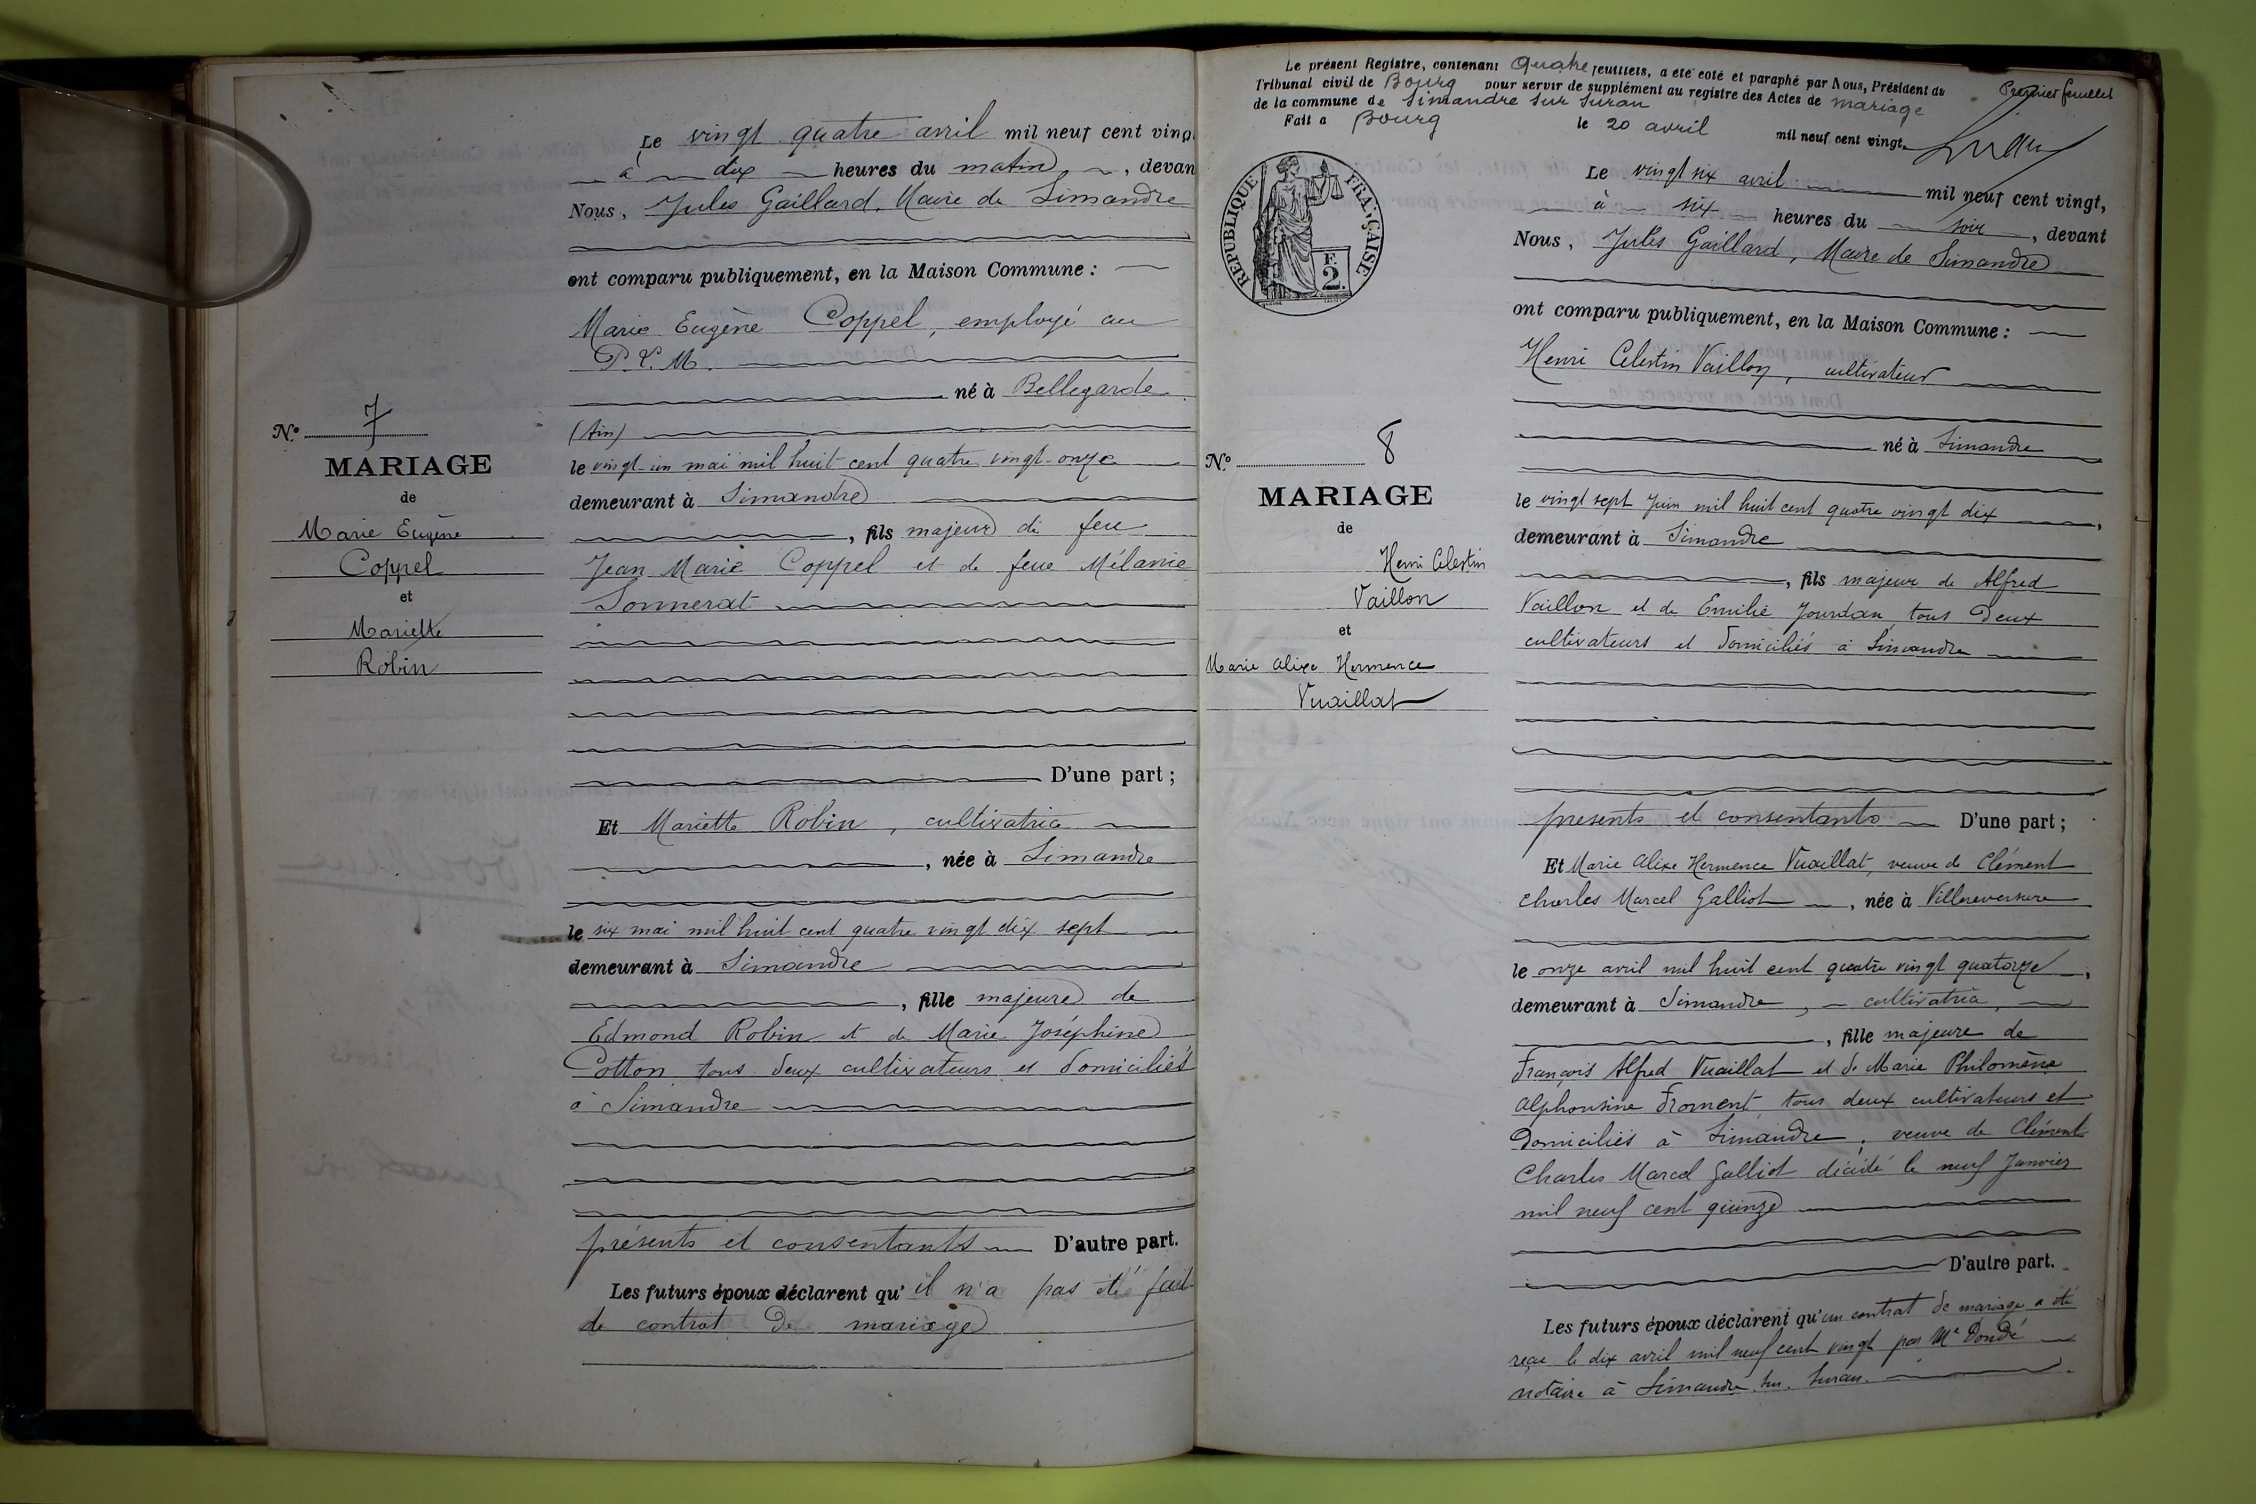 Le vingt quatre avril mil neuf cent vingt
à dix heures du matin, devan
Nous, Jules Gaillard, Maire de Simandre
ont comparu publiquement, en la Maison Commune :
Marie Eugène Coppel, employé au
P. L. M.
né à Bellegarde
(Ain)
le vingt-un mai mil huit cent quatre vingt-onze
demeurant à Simandre
, fils majeur de feu
Jean Marie Coppel et de feue Mélanie
Sonnerat
D'une part ;
Et Mariette Robin, cultivatrice
, née à Simandre
le six mai mil huit cent quatre vingt dix sept
demeurant à Simandre
, fille majeure de
Edmond Robin et de Marie Joséphine
Cotton tous deux cultivateurs et domiciliés
à Simandre
présents et consentants D'autre part.
Les futurs époux déclarent qu'il n'a pas été fait
de contrat de mariage
N° 7
MARIAGE
de
Marie Eugène
Coppel
et
Mariette
Robin
Le présent Registre, contenant Quatre feuillets, a été coté et paraphé par Nous, Président du
Tribunal civil de Bourg pour servir de supplément au registre des Actes de mariage
de la commune de Simandre sur Suran
Fait a Bourg le 20 avril mil neuf cent vingt,
Premier feuillet
REPUBLIQUE FRANÇAISE
F.
2.
Le vingt six avril mil neuf cent vingt,
à six heures du soir, devant
Nous, Jules Gaillard, Maire de Simandre
ont comparu publiquement, en la Maison Commune :
Henri Celestin Vaillon, cultivateur
né à Simandre
le vingt sept Juin mil huit cent quatre vingt dix,
demeurant à Simandre
, fils majeur de Alfred
Vaillon et de Emilie Jourdan tous deux
cultivateurs et domiciliés à Simandre
présents et consentants D'une part ;
Et Marie Alixe Hermence Vuaillat, veuve de Clément
Charles Marcel Galliot, née à Villereversure
le onze avril mil huit cent quatre vingt quatorze,
demeurant à Simandre, cultivatrice,
, fille majeure de
François Alfred Vuaillat et de Marie Philomène
Alphonsine Froment, tous deux cultivateurs et
domiciliés à Simandre, veuve de Clément
Charles Marcel Galliot décédé le neuf Janvier
mil neuf cent quinze
D'autre part.
Les futurs époux déclarent qu'un contrat de mariage a été
reçu le dix avril mil neuf cent vingt par Me Dondé
notaire à Simandre sur Suran.
N° 8
MARIAGE
de
Henri Celestin
Vaillon
et
Marie Alixe Hermence
Vuaillat